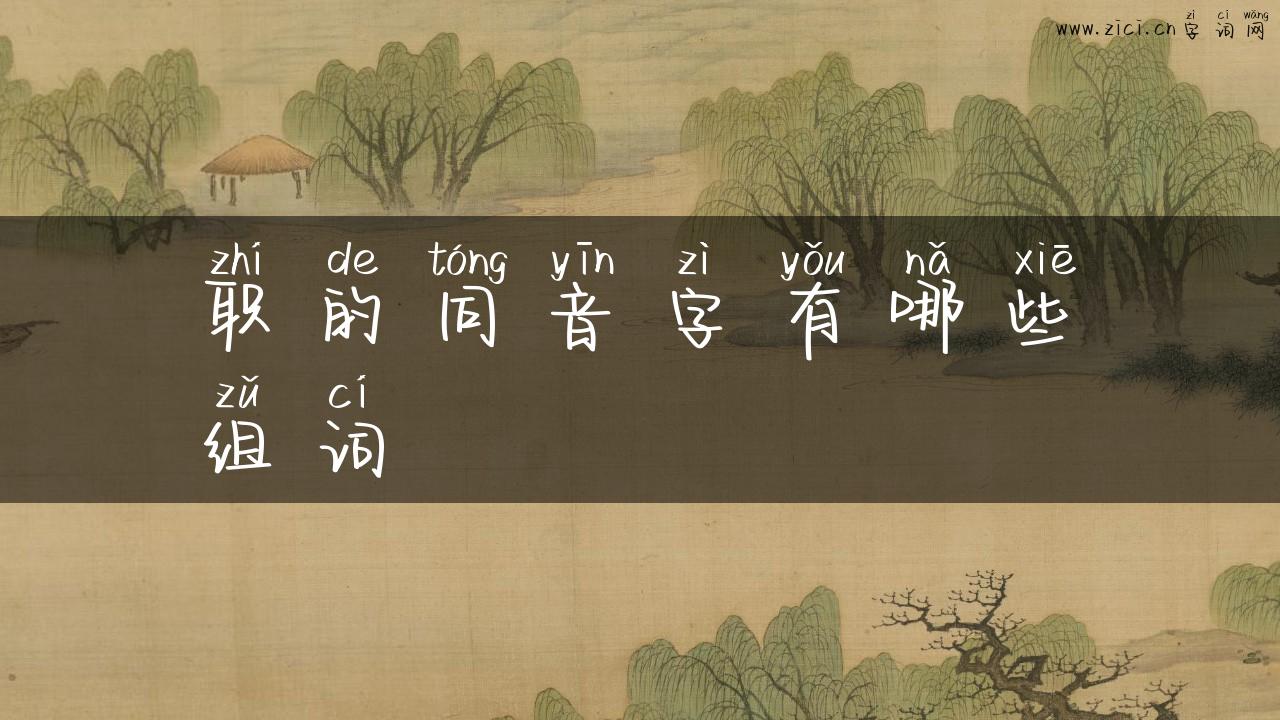 www.zici.cn zì cí wǎng
字词网
zhí de tóng yīn zì yǒu nǎ xiē
职的同音字有哪些
zǔ cí
组词